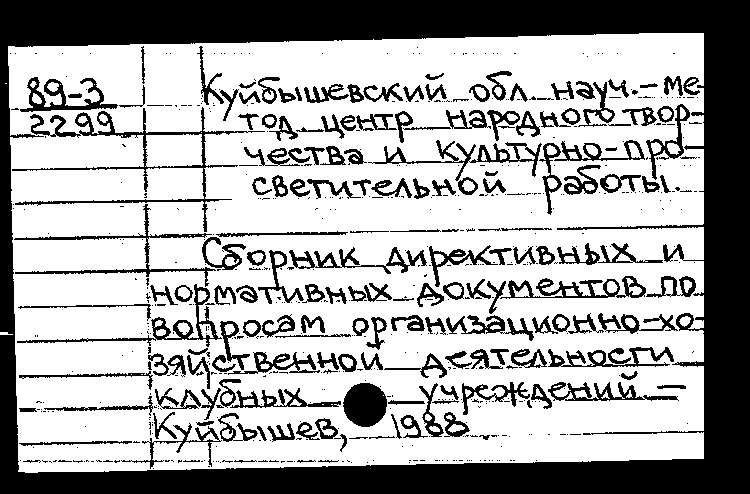 89-3
2299
Куйбышевский обл. науч.-ме-
тод. центр народного твор-
чества и культурно-про-
светительной работы.
Сборник директивных и
нормативных документов по
вопросам организационно-хо-
зяйственной деятельности
клубных учреждений. —
Куйбышев, 1988.